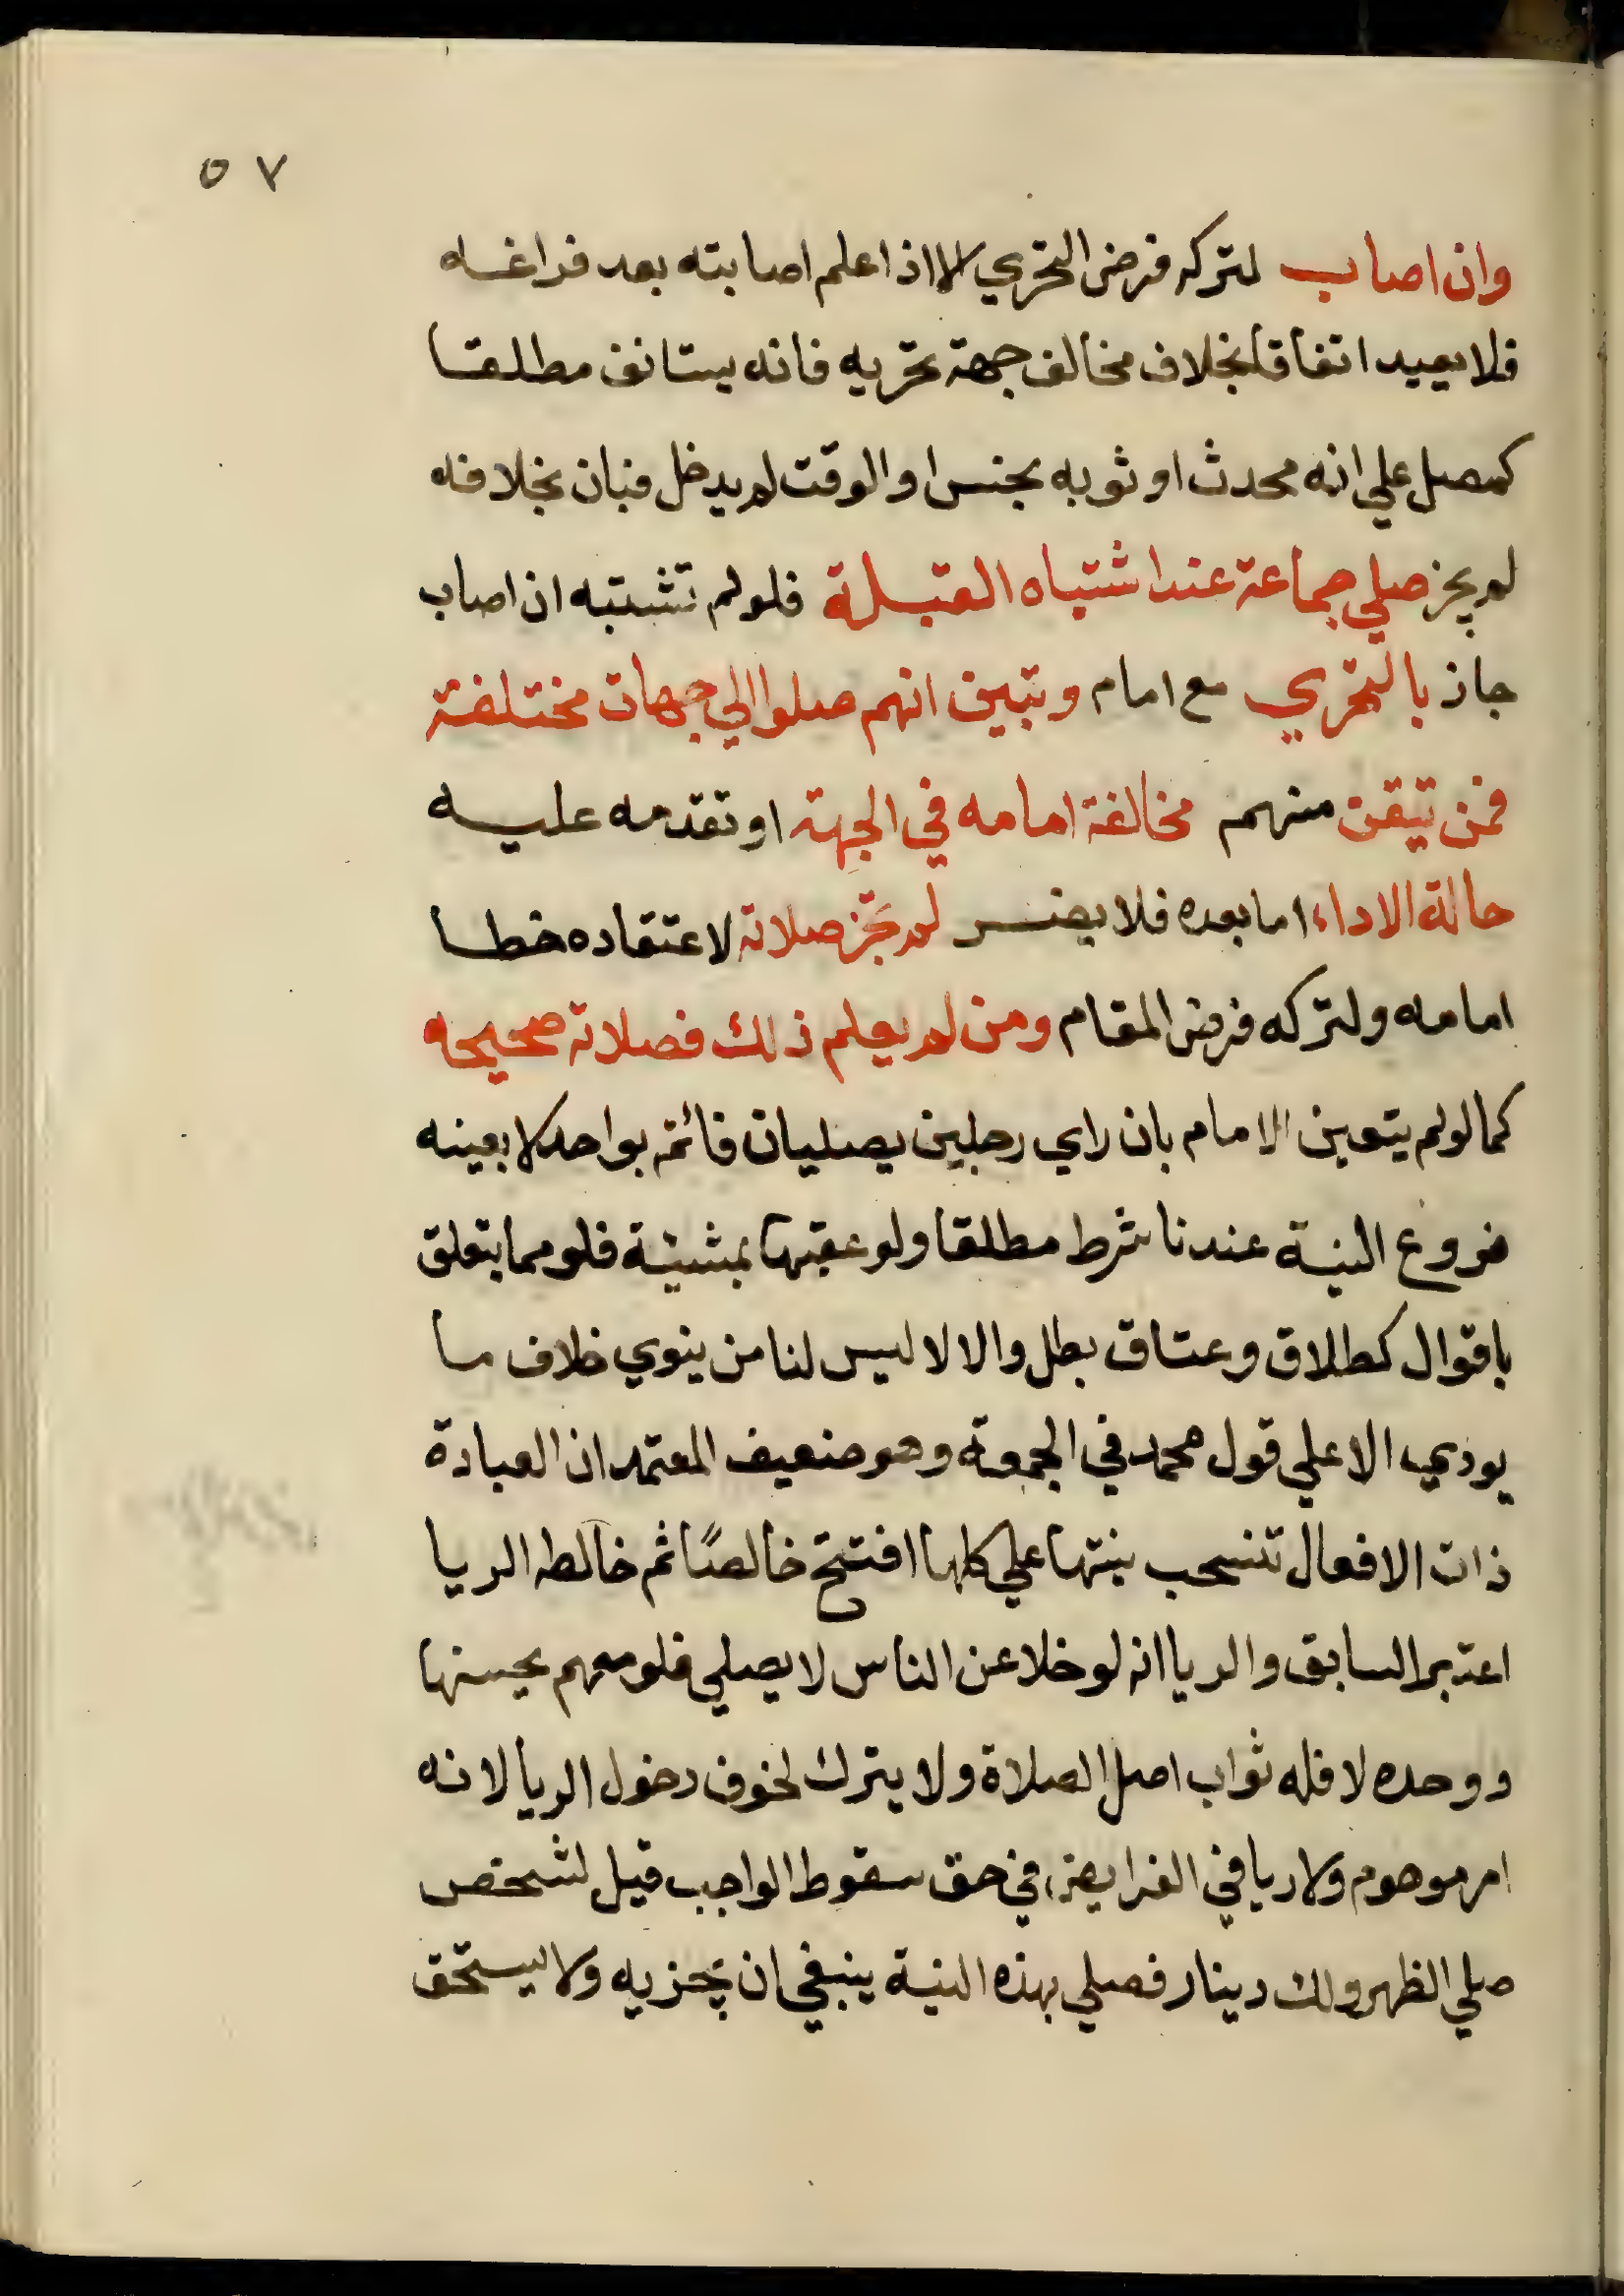 ٥٧
وان اصاب لتركه فرض التحري الا اذا علم اصابته بعد فراغه
فلا يعيد اتفاقا بخلاف مخالف جهة تحريه فانه يستانف مطلقا
كمصل علي انه محدث او ثوبه نجس او الوقت لم يدخل فبان بخلافه
لم يجز صلي جماعة عند اشتباه القبلة فلو لم تشتبه ان اصاب
جاز بالتحري مع امام وتبين انهم صلوا الي جهات مختلفة
فمن تيقن منهم مخالفة امامه في الجهة او تقدمه عليه
حالة الاداء اما بعده فلا يضر لم تجز صلاته لاعتقاده خطا
امامه ولتركه فرض المقام ومن لم يعلم ذلك فصلاته صحيحه
كما لو لم يتعين الامام بان راي رجلين يصليان فائتم بواحد لا بعينه
فروع النية عندنا شرط مطلقا ولو عقبها بمشيئة فلو مما يتعلق
باقوال كطلاق وعتاق بطل والا لا ليس لنا من ينوي خلاف ما
يودي الا علي قول محمد في الجمعة وهو ضعيف المعتمد ان العبادة
ذات الافعال تنسحب نيتها علي كلها افتتح خالصًا ثم خالطه الريا
اعتبر السابق والريا انه لو خلا عن الناس لا يصلي فلو معهم يحسنها
ووحده لا فله ثواب اصل الصلاة ولا يترك لخوف دخول الريا لانه
امر موهوم ولا ريا في الفرايض في حق سقوط الواجب قيل لشخص
صلي الظهر ولك دينار فصلي بهذه النية ينبغي ان تجزيه ولا يستحق